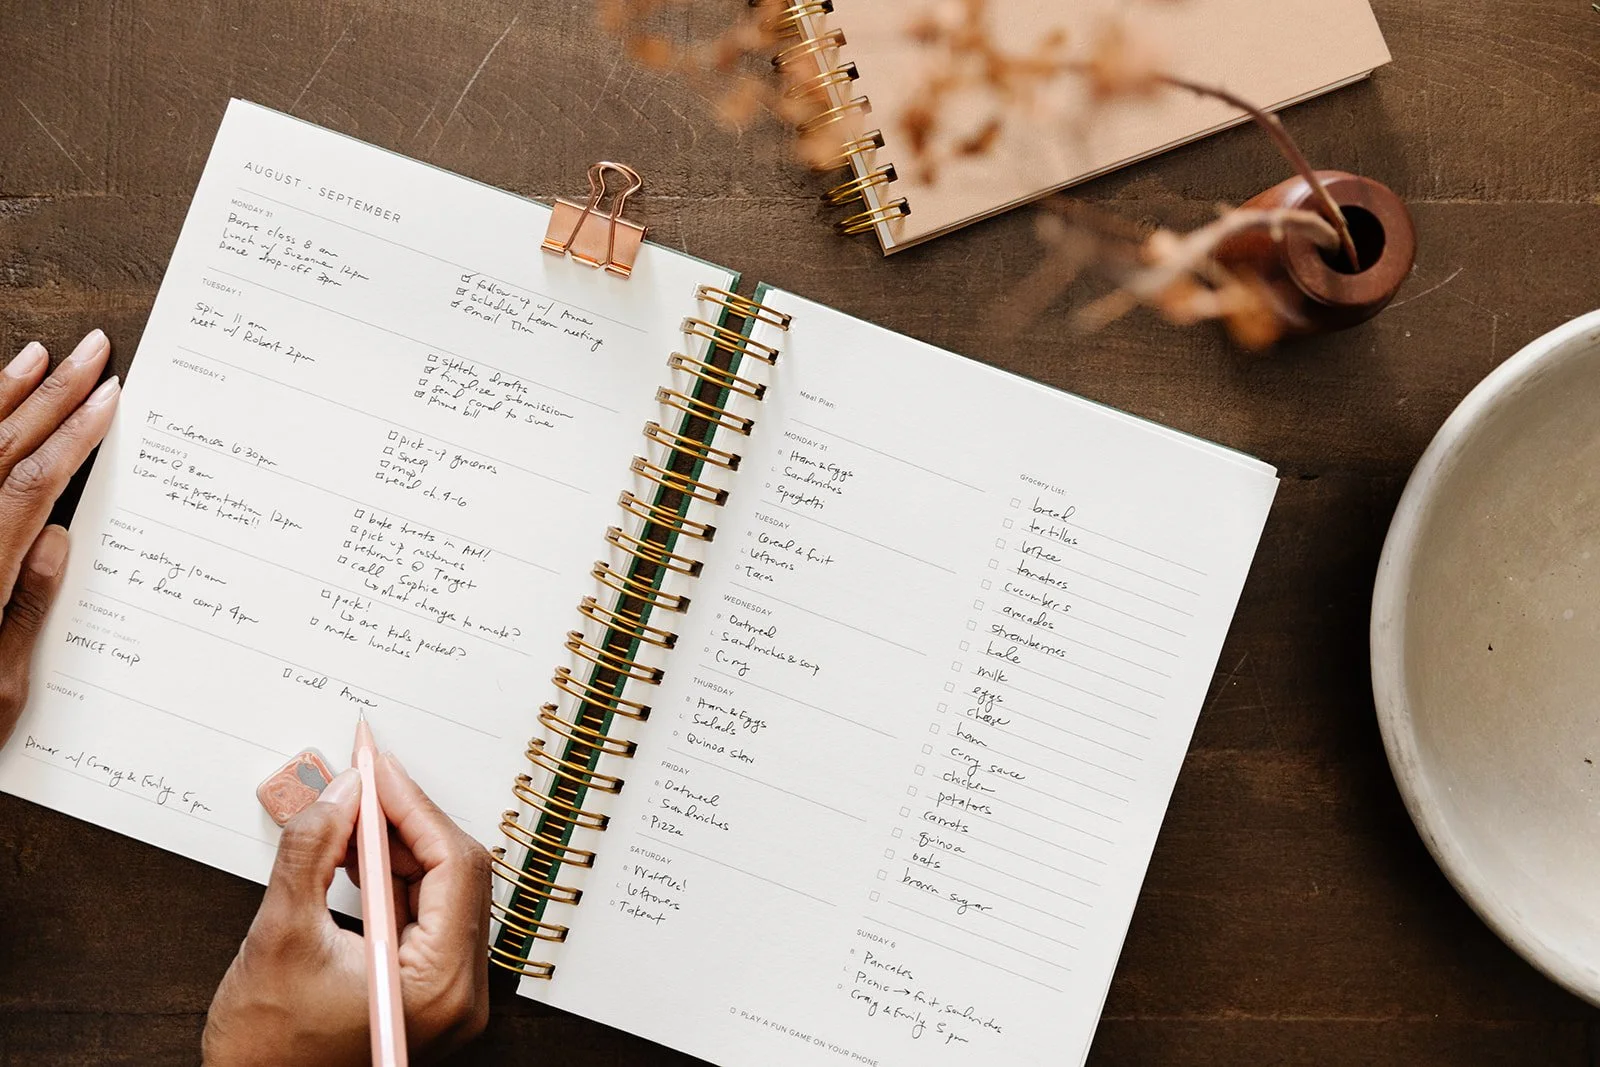 AUGUST - SEPTEMBER
MONDAY 31
Barre class 8 am
Lunch w/ Suzanne 12pm
Dance drop-off 3pm
follow-up w/ Anne
schedule team meeting
email Tim
TUESDAY 1
Spin 11 am
meet w/ Robert 2pm
sketch drafts
finalize submission
send card to Sue
phone bill
WEDNESDAY 2
PT conferences 6:30pm
pick-up groceries
Sweep
mop
read ch. 4-6
THURSDAY 3
Barre @ 8am
Liza class presentation 12pm
* take treats!!
bake treats in AM!
pick up costumes
returns @ Target
call Sophie
↳ what changes to make?
FRIDAY 4
Team meeting 10am
leave for dance comp 4pm
pack!
↳ are kids packed?
make lunches
SATURDAY 5
INT. DAY OF CHARITY
DANCE COMP
call Anne
SUNDAY 6
Dinner w/ Craig & Emily 5pm
Meal Plan:
MONDAY 31
B Ham & Eggs
L Sandwiches
D Spaghetti
TUESDAY
B Cereal & fruit
L leftovers
D Tacos
WEDNESDAY
B Oatmeal
L Sandwiches & soup
D Curry
THURSDAY
B Ham & Eggs
L Salads
D Quinoa Stew
FRIDAY
B Oatmeal
L Sandwiches
D Pizza
SATURDAY
B Waffles!
L leftovers
D Takeout
Grocery List:
bread
tortillas
lettuce
tomatoes
cucumbers
avocados
strawberries
kale
milk
eggs
cheese
ham
curry sauce
chicken
potatoes
carrots
quinoa
oats
brown sugar
SUNDAY 6
B Pancakes
L Picnic → fruit, sandwiches
D Craig & Emily 5pm
PLAY A FUN GAME ON YOUR PHONE